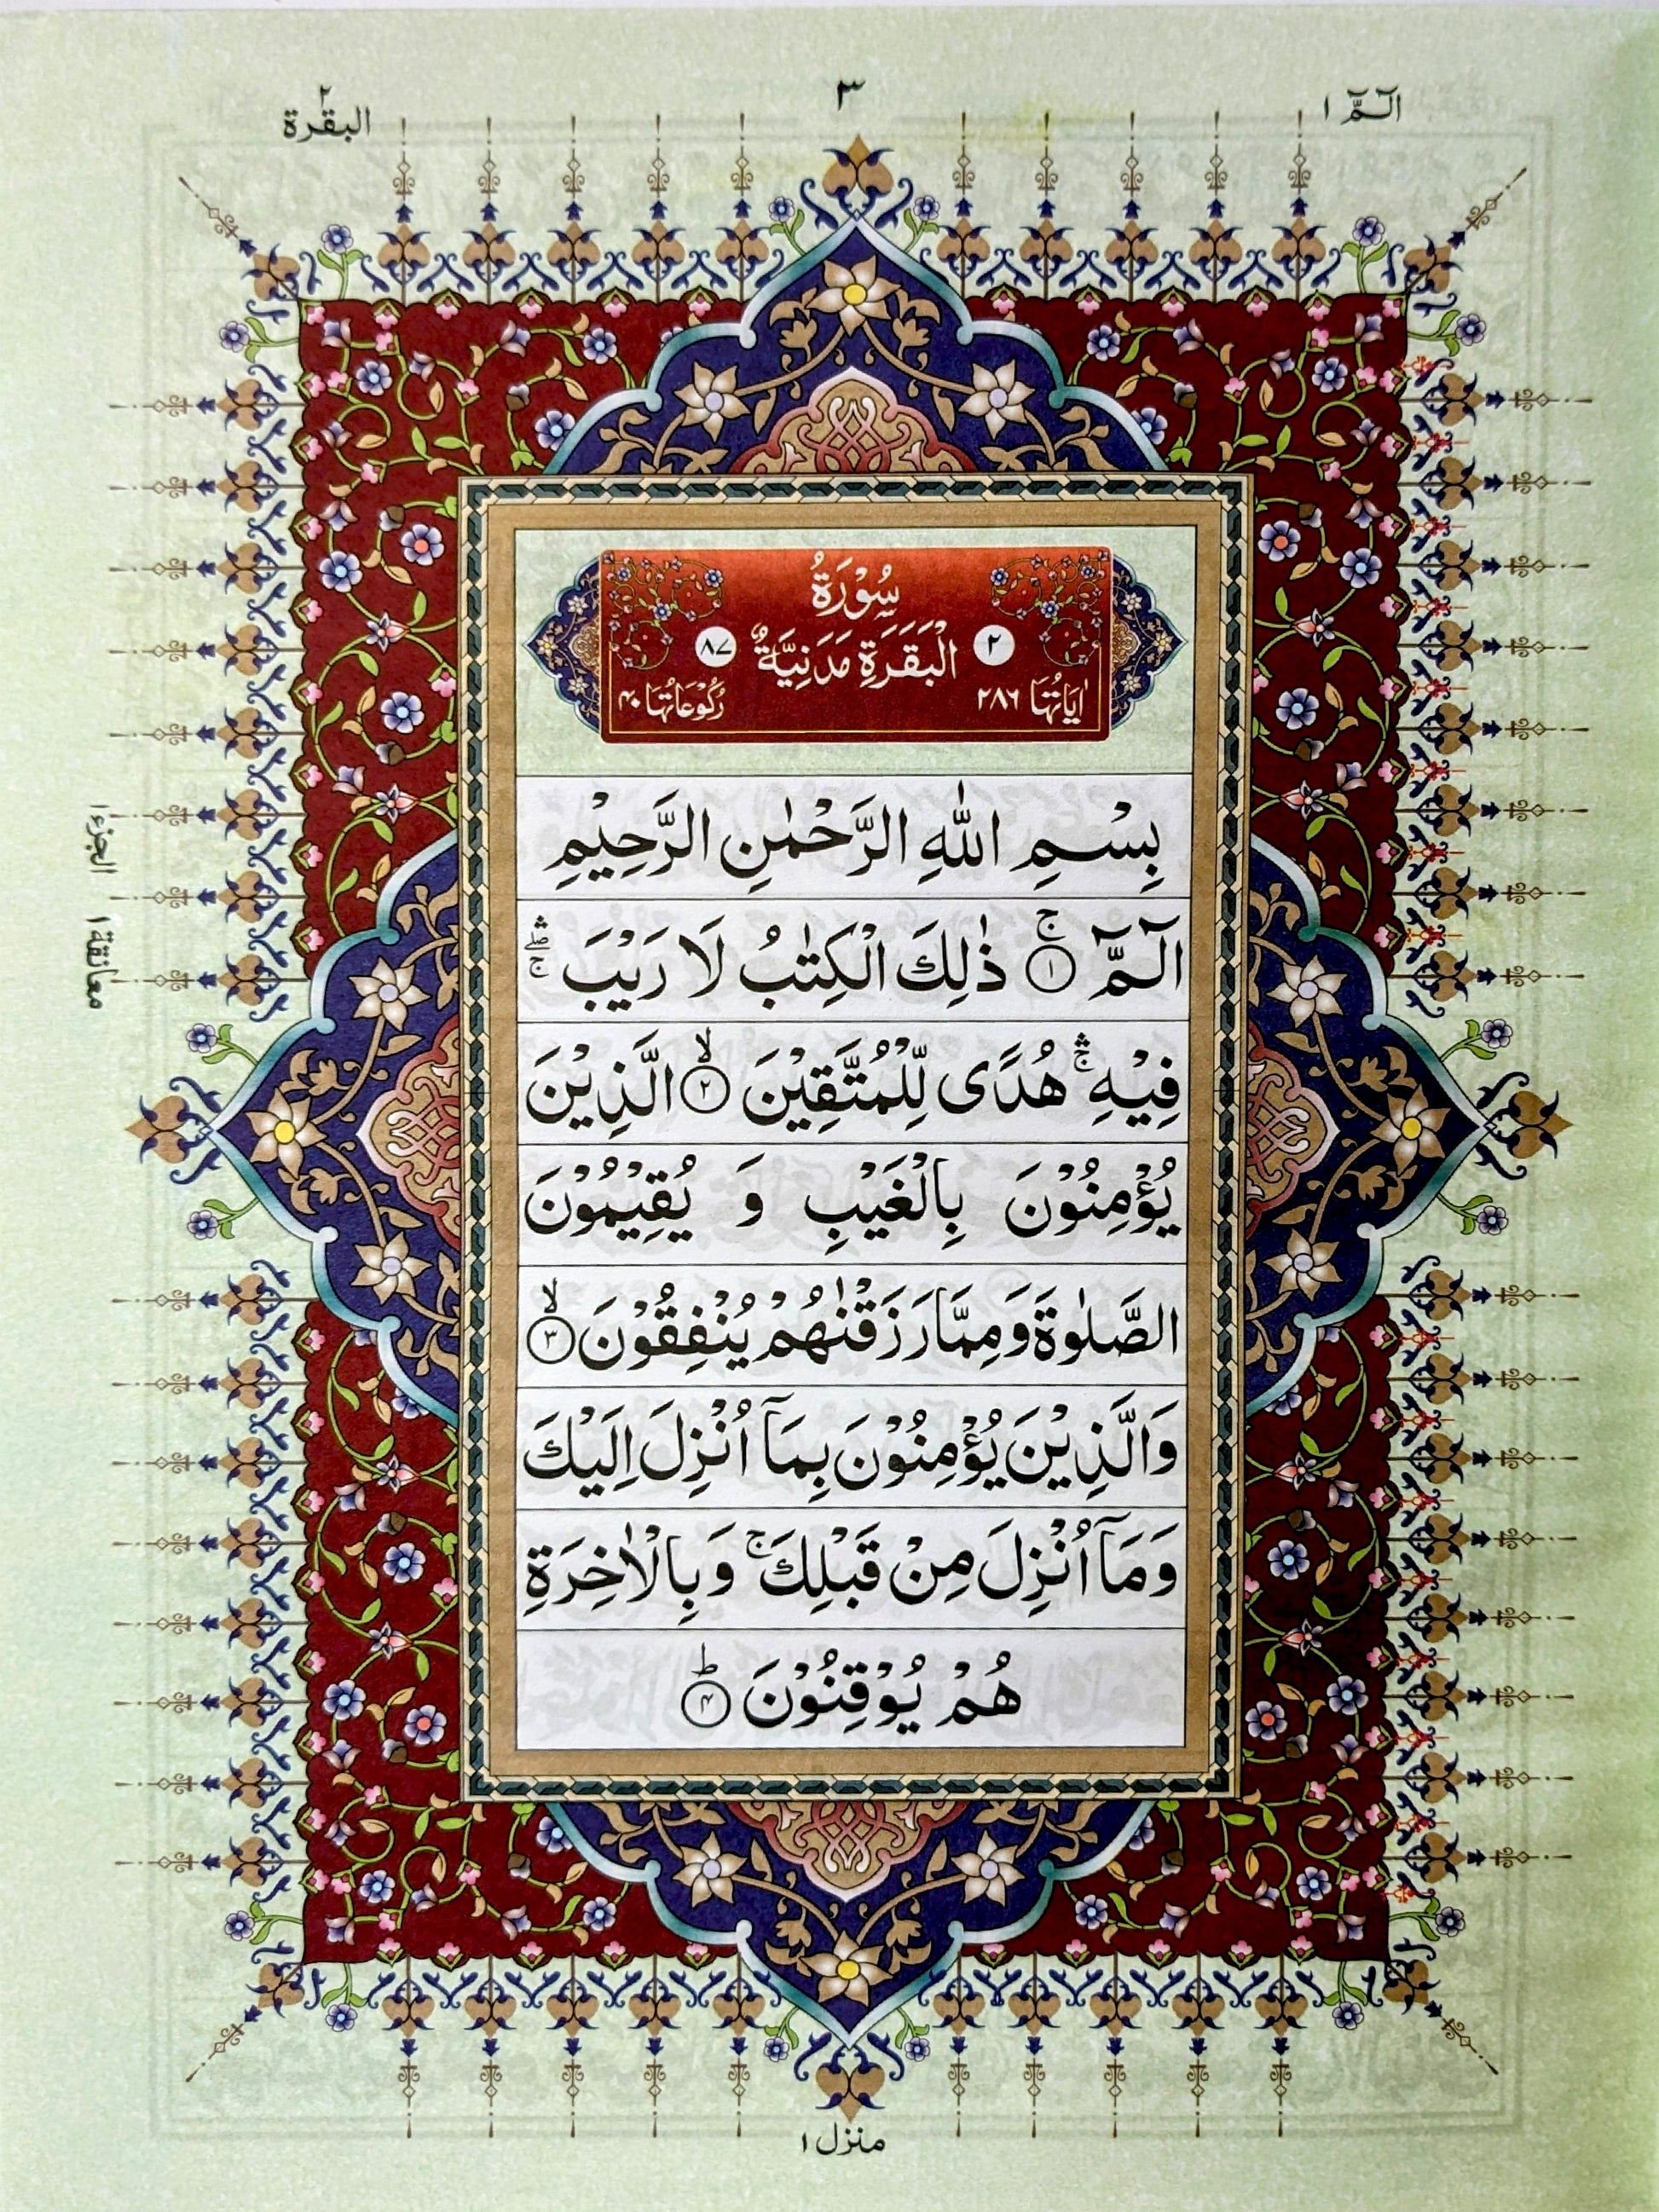 الٓمّٓ ١
٣
البقرة ٢
سُوْرَةُ
٢ الْبَقَرَةِ مَدَنِيَّةٌ ٨٧
اٰيَاتُهَا ٢٨٦
رُكُوْعَاتُهَا ۴۰
بِسْمِ اللّٰهِ الرَّحْمٰنِ الرَّحِيْمِ
الٓمّٓ ۚ﴿١﴾ ذٰلِكَ الْكِتٰبُ لَا رَيْبَ ۛۖۚ
فِيْهِ ۛۚ هُدًى لِّلْمُتَّقِيْنَ ۙ﴿٢﴾ الَّذِيْنَ
يُؤْمِنُوْنَ بِالْغَيْبِ وَ يُقِيْمُوْنَ
الصَّلٰوةَ وَمِمَّا رَزَقْنٰهُمْ يُنْفِقُوْنَ ۙ﴿٣﴾
وَالَّذِيْنَ يُؤْمِنُوْنَ بِمَآ اُنْزِلَ اِلَيْكَ
وَمَآ اُنْزِلَ مِنْ قَبْلِكَ ۚ وَبِالْاٰخِرَةِ
هُمْ يُوْقِنُوْنَ ؕ﴿۴﴾
معانقة ١ الجزء ١
منزل ١